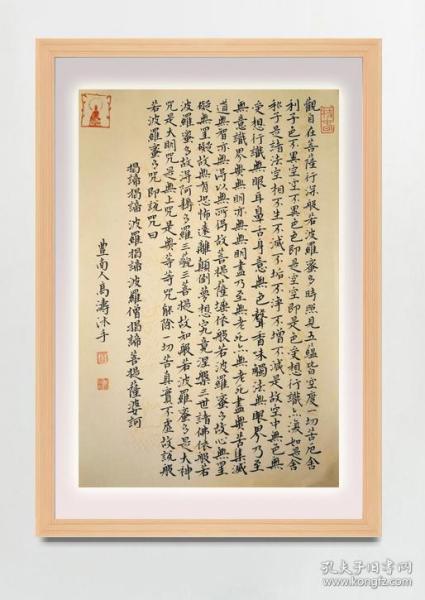 觀自在菩薩行深般若波羅蜜多時照見五蘊皆空度一切苦厄舍
利子色不異空空不異色色即是空空即是色受想行識亦復如是舍
利子是諸法空相不生不滅不垢不淨不增不減是故空中無色無
受想行識無眼耳鼻舌身意無色聲香味觸法無眼界乃至
無意識界無無明亦無無明盡乃至無老死亦無老死盡無苦集滅
道無智亦無得以無所得故菩提薩埵依般若波羅蜜多故心無罣
礙無罣礙故無有恐怖遠離顛倒夢想究竟涅槃三世諸佛依般若
波羅蜜多故得阿耨多羅三藐三菩提故知般若波羅蜜多是大神
咒是大明咒是無上咒是無等等咒能除一切苦真實不虛故說般
若波羅蜜多咒即說咒曰
揭諦揭諦 波羅揭諦 波羅僧揭諦 菩提薩婆訶
豐南人馬濤沐手
孔夫子旧书网
www.kongfz.com